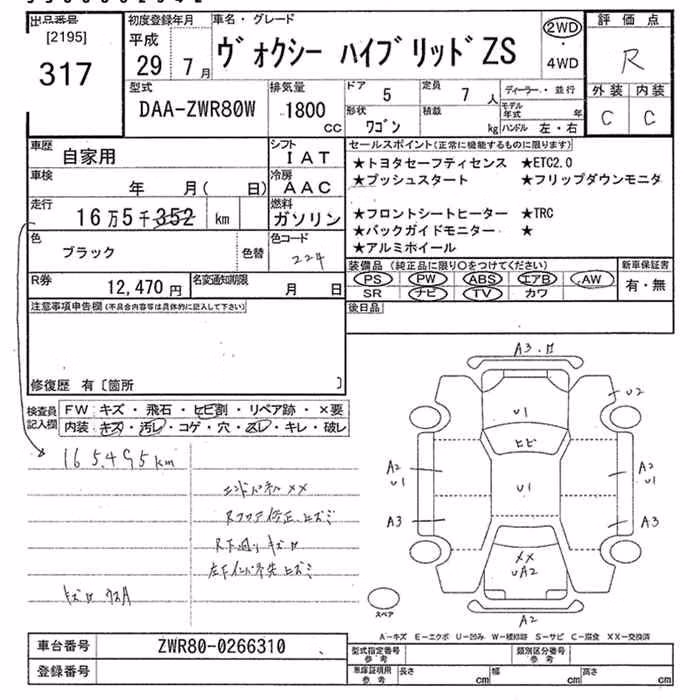 出品番号
[2195]
317
初度登録年月
平成
29 7 月
車名・グレード
ヴォクシー ハイブリッドZS
2WD
・
4WD
評価点
R
外装 内装
C C
型式
DAA-ZWR80W
排気量
1800
CC
ドア
5
定員
7 人
形状
ワゴン
積載
kg
ディーラー・並行
モデル年式 年
ハンドル 左・右
車歴
自家用
シフト
IAT
車検
年 月( 日)
冷房
AAC
走行
16万5千352 km
燃料
ガソリン
色
ブラック
色替
色コード
224
R券
12,470 円
名変通知期限
月 日
セールスポイント(正常に機能するものに限ります)
★トヨタセーフティセンス ★ETC2.0
★プッシュスタート ★フリップダウンモニタ
★フロントシートヒーター ★TRC
★バックガイドモニター ★
★アルミホイール
装備品(純正品に限り○をつけてください)
PS PW ABS エアB AW
SR ナビ TV カワ
新車保証書
有・無
注意事項申告欄(不具合内容等は具体的に記入して下さい)
後日品
修復歴 有〔箇所 〕
検査員記入欄
FW キズ・飛石・ヒビ割・リペア跡・×要
内装・キズ・汚レ・コゲ・穴・スレ・キレ・破レ
165,495km
エンドパネル XX
Rフロア修正ヒズミ
R下廻りキズ
左下インパネ先ヒズミ
A3
U2
U1
ヒビ
A2
U1
U1
A2
U1
A3
A3
XX
UA2
A2
スペア
A-キズ E-エクボ U-凹み W-補修跡 S-サビ C-腐食 XX-交換済
車台番号
ZWR80-0266310
型式指定番号
参考
類別区分番号
参考
登録番号
車庫証明用
参考
長さ cm
幅 cm
高さ cm